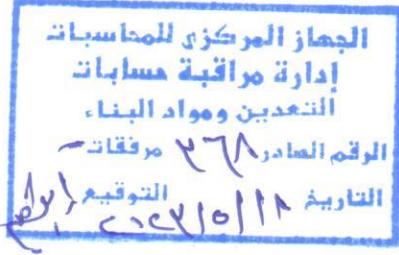 الجهاز المركزى للمحاسبات
إدارة مراقبة حسابات
التعدين ومواد البناء
الرقم الصادر ٣٦٨ مرفقات -
التاريخ ٢٠٢٣/٥/١٨ التوقيع